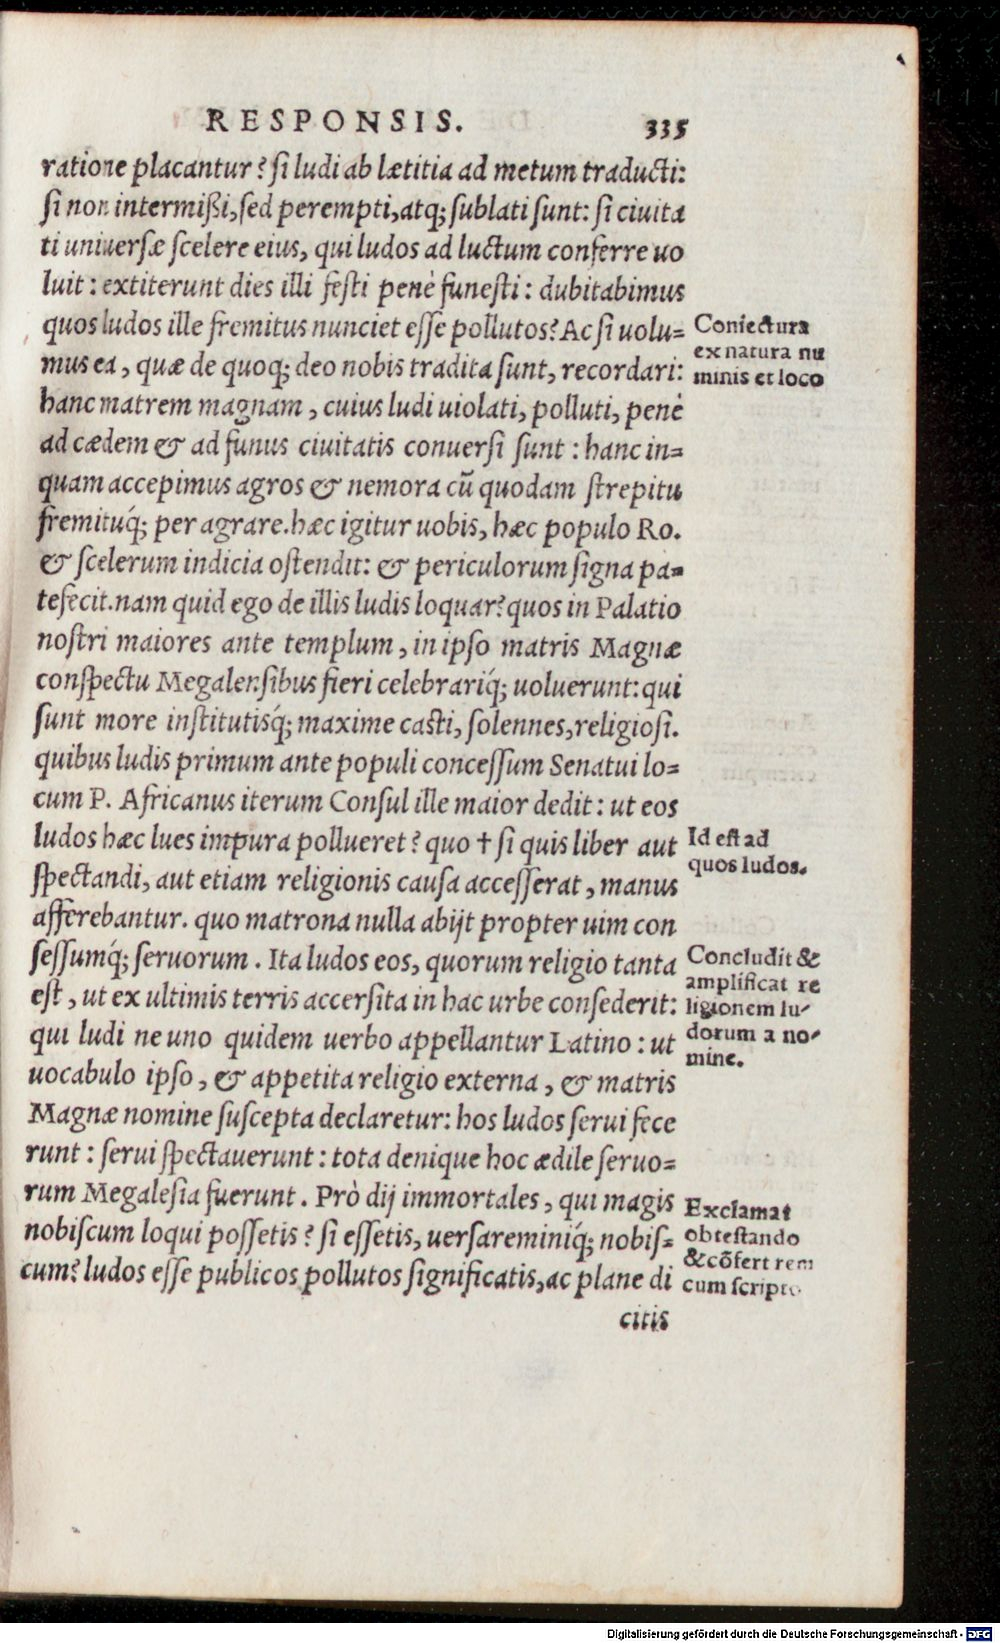 RESPONSIS. 335
ratione placantur? ſi ludi ab lætitia ad metum traducti:
ſi non intermißi, ſed perempti, atq; ſublati ſunt: ſi ciuita
ti uniuerſæ ſcelere eius, qui ludos ad luctum conferre uo
luit: extiterunt dies illi feſti penè funeſti: dubitabimus
quos ludos ille fremitus nunciet eſſe pollutos? Ac ſi uolu=
mus ea, quæ de quoq; deo nobis tradita ſunt, recordari:
hanc matrem magnam, cuius ludi uiolati, polluti, penè
ad cædem & ad funus ciuitatis conuerſi ſunt: hanc in=
quam accepimus agros & nemora cū quodam ſtrepitu
fremituq́; per agrare. hæc igitur uobis, hæc populo Ro.
& ſcelerum indicia oſtendit: & periculorum ſigna pa=
tefecit. nam quid ego de illis ludis loquar? quos in Palatio
noſtri maiores ante templum, in ipſo matris Magnæ
conſpectu Megalenſibus fieri celebrariq́; uoluerunt: qui
ſunt more inſtitutisq́; maxime caſti, ſolennes, religioſi.
quibus ludis primum ante populi conceſſum Senatui lo=
cum P. Africanus iterum Conſul ille maior dedit: ut eos
ludos hæc lues impura pollueret? quo † ſi quis liber aut
ſpectandi, aut etiam religionis cauſa acceſſerat, manus
afferebantur. quo matrona nulla abijt propter uim con
ſeſſumq́; ſeruorum. Ita ludos eos, quorum religio tanta
eſt, ut ex ultimis terris accerſita in hac urbe conſederit:
qui ludi ne uno quidem uerbo appellantur Latino: ut
uocabulo ipſo, & appetita religio externa, & matris
Magnæ nomine ſuſcepta declaretur: hos ludos ſerui fece
runt: ſerui ſpectauerunt: tota denique hoc ædile ſeruo=
rum Megaleſia fuerunt. Prò dij immortales, qui magis
nobiſcum loqui poſſetis? ſi eſſetis, uerſareminiq́; nobiſ=
cum? ludos eſſe publicos pollutos ſignificatis, ac plane di
citis
Coniectura
ex natura nu
minis et loco
Id eſt ad
quos ludos.
Concludit &
amplificat re
ligionem lu-
dorum a no-
mine.
Exclamat
obteſtando
& cōfert rem
cum ſcripto
Digitalisierung gefördert durch die Deutsche Forschungsgemeinschaft - DFG